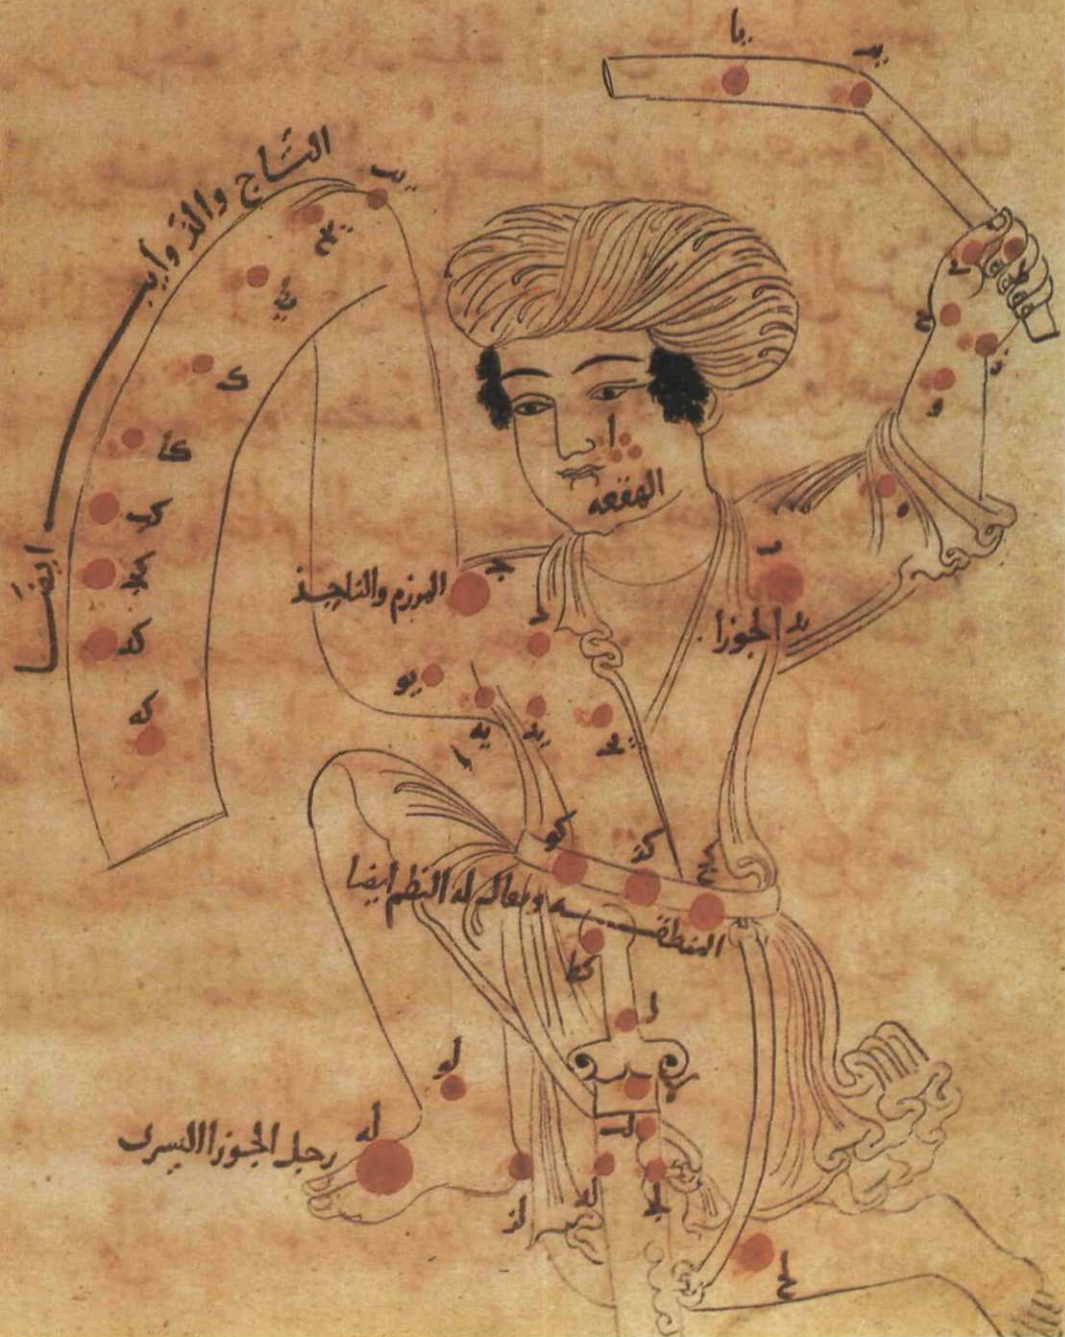 يا
يب
التاج والذوايب
ايضا
يز
يح
يط
ك
كا
كب
كج
كد
كه
ط
ي
ح
ز
و
ه
ا
الهقعه
ب
يد الجوزا
ج
المرزم والناجذ
د
يو
يه
يد
يج
كو
كز
كح
المنطقه ويقال له النظم ايضا
كط
ل
لا
لب
لج
لد
لو
له
رجل الجوزا اليسرى
لز
لح